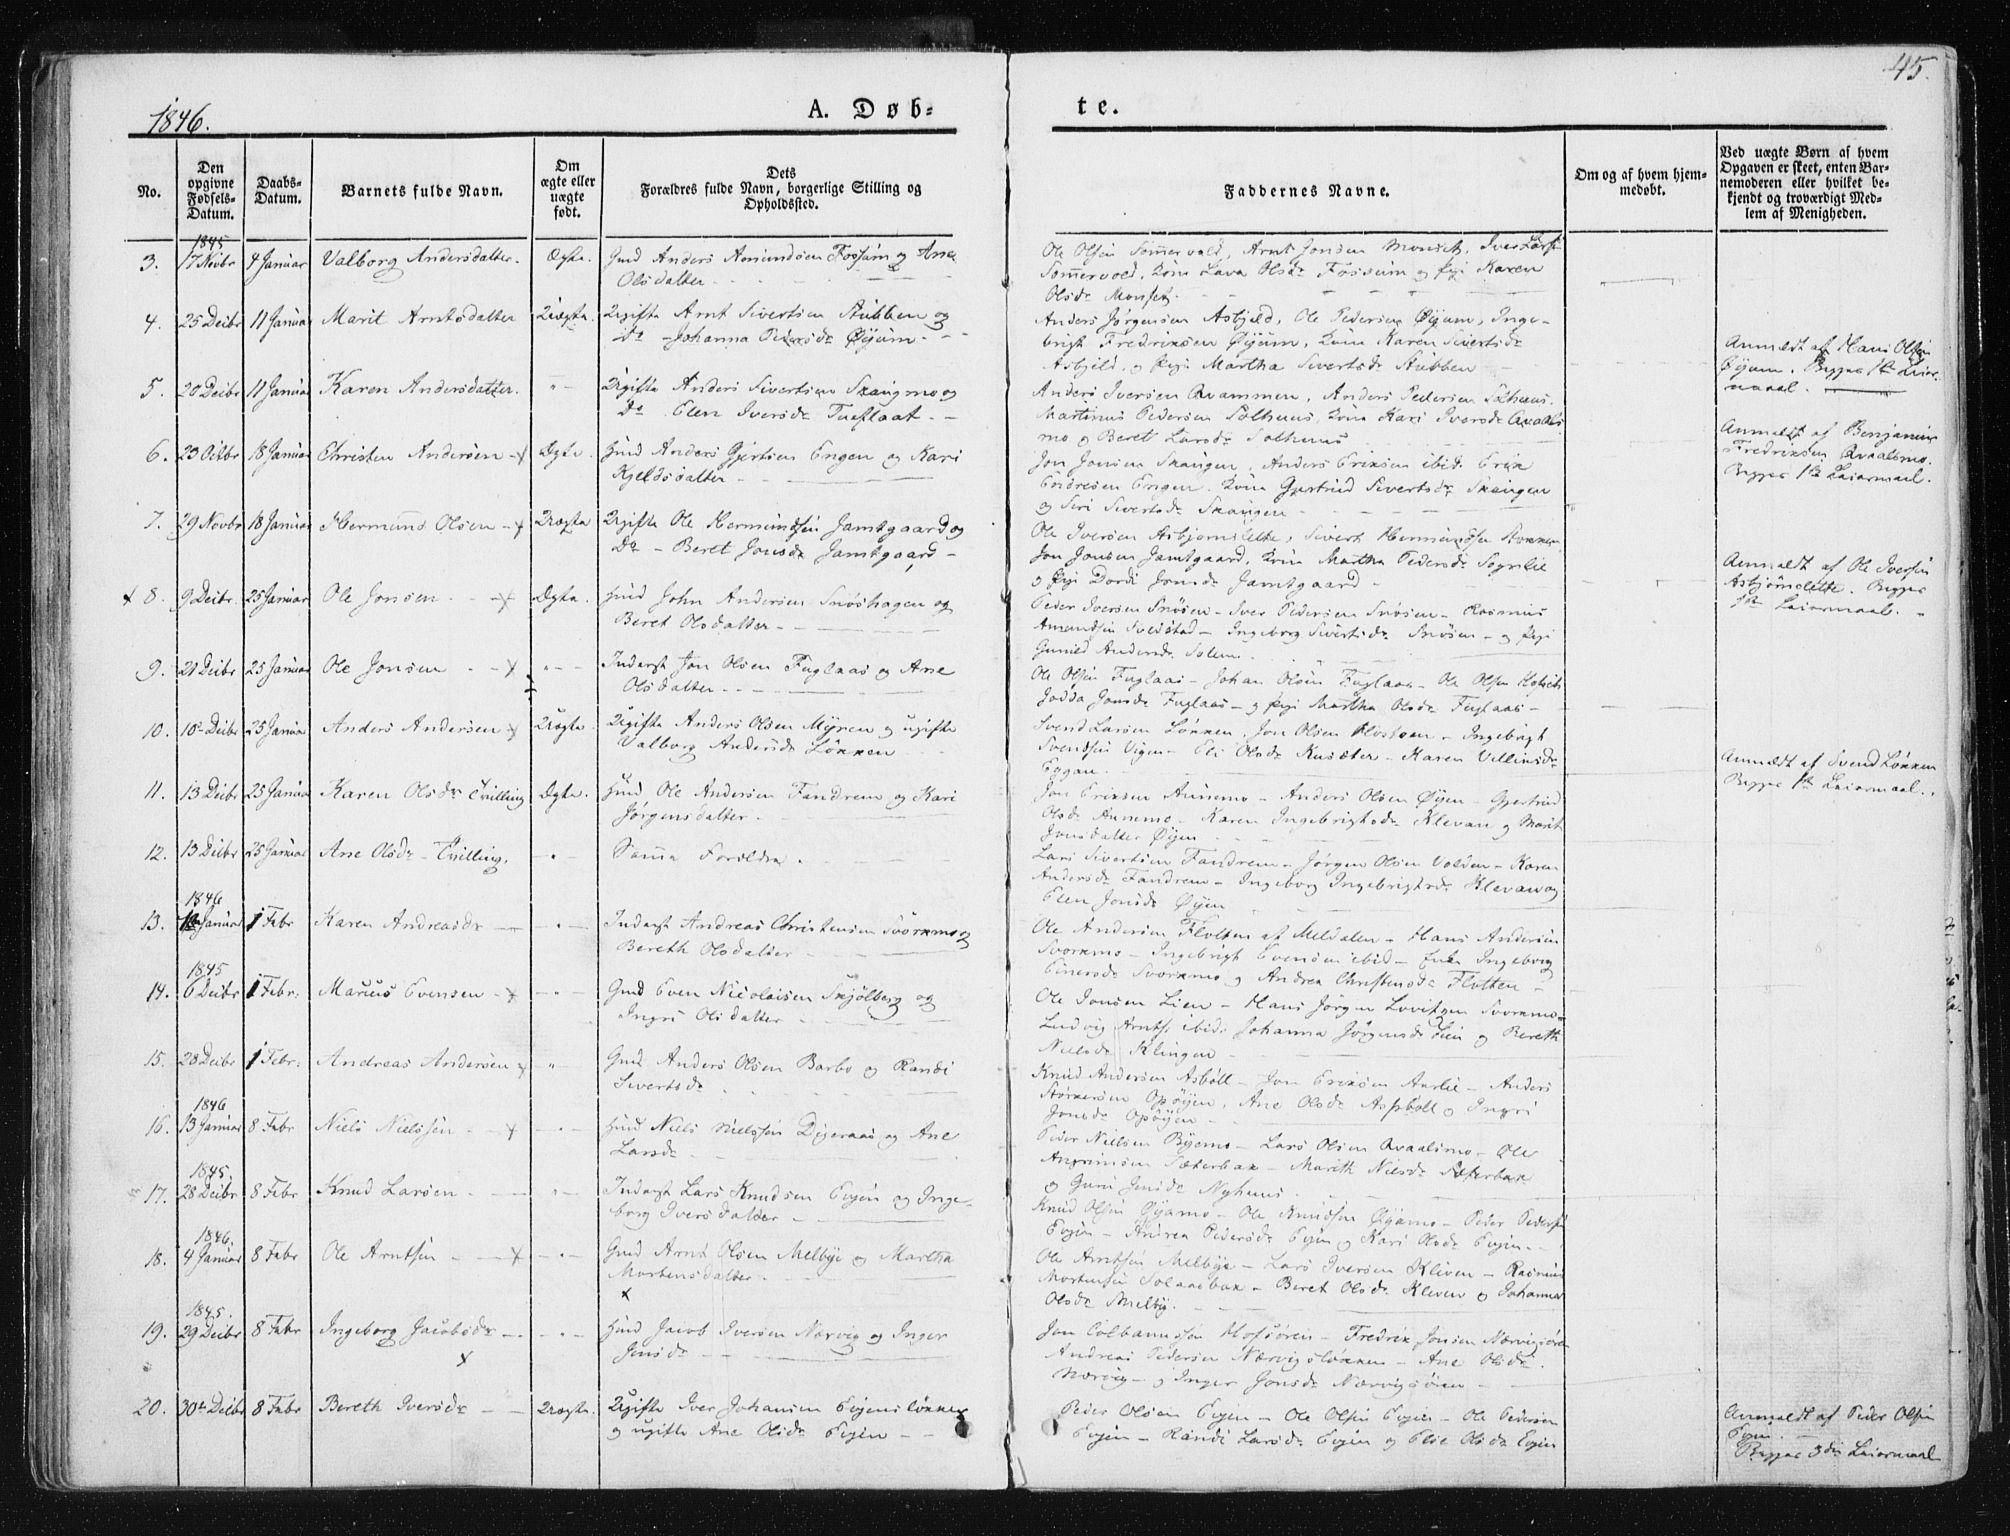 1846.
A. Døb=
te.
45.
No.
Den opgivne Fødsels-Datum.
Daabs-Datum.
Barnets fulde Navn.
Om ægte eller uægte født.
Dets Forældres fulde Navn, borgerlige Stilling og Opholdssted.
Faddernes Navne.
Om og af hvem hjemmedøbt.
Ved uægte Børn af hvem Opgaven er skeet, enten Barnemoderen eller hvilket bekjendt og troværdigt Medlem af Menigheden.
1845
3. 17 Novbr 4 Januar Valborg Andersdatter. Ægte. Gmd Anders Amundsen Fossum og Ane
Olsdatter
Ole Olsen Sommervold, Arnt Jonsen Monset, Iver Larsen
Sommervold, Kone Olsdr Fossum og Pigi Karen
Olsdr Monset.
4. 25 Decbr 11 Januar Marit Arntsdatter Uægte. Ugifte Arnt Sivertsen Stubben og
Do Johanna Pedersdr Øyum
Anders Jørgensen Asbjeld, Ole Pedersen Øyum, Inge-
brigt Fredriksen Øyum, Kone Karen Sivertsdr
Asbjeld, og Pigi Martha Sivertsdr Stubben
Anmeldt af Hans Olsen
Øyum. Begges 1ste Leier-
maal.
5. 20 Decbr 11 Januar Karen Andersdatter. Ugifte Anders Sivertsen Skaugmo og
Do Elen Iversdr
Anders Iversen Qvammen, Anders Pedersen Solhuus.
Martinus Pedersen Solhuus, Kone Kari Iversdr Qvaals-
mo og Beret Larsdr Solhuus
Anmeldt af Benjamin
Fredriksen Qvaalsmo.
Begges 1ste Leiermaal.
6. 23 Octbr 18 Januar Christen Andersen Ægte. Huusmd Anders Gjertsen Engen og Kari
Kjeldsdatter
Jon Jonsen Skaugen, Anders Eriksen ibid. Erik
Endresen Engen. Kone Gjertrud Sivertsdr Skaugen
og Siri Sivertsdr Skaugen
7. 29 Novbr 18 Januar Hermund Olsen Uægte Ugifte Ole Hermundsen Jamtgaard og
Do Beret Jonsdr Jamtgaard
Ole Iversen Asbjørnslette, Sivert Hermundsen
Jon Jonsen Jamtgaard, Kone Martha Pedersdr Sognlie
og Pigi Dordi Jonsdr Jamtgaard
Anmeldt af Ole Iversen
Asbjørnslette. Begges
1ste Leiermaal.
8. 9 Decbr. 25 Januar Ole Jonsen Ægte. Huusmd John Andersen Snøshagen og
Beret Olsdatter
Peder Iversen Snøsen - Iver Pedersen Snøsen - Rasmus
Amundsen - Ingeborg Sivertsdr Snøsen - og Pigi
Gunild Andersdr Solem
9. 21 Decbr 25 Januar Ole Jonsen Inderst Jon Olsen Fuglaas og Ane
Olsdatter
Ole Olsen Fuglaas - Johan Olsen Fuglaas - Ole Olsen
Jonsdr Fuglaas - og Pigi Martha Olsdr Fuglaas
10. 10 Decbr 25 Januar Anders Andersen Uægte Ugifte Anders Olsen Myren og ugifte
Valborg Andersdr Løkken
Svend Larsen Løkken, Jon Olsen - Ingebrigt
Svendsen Vigen - Eli Olsdr - Karen Villumsdr
Anmeldt af Svend Løkken
Begges 1ste Leiermaal.
11. 13 Decbr 25 Januar Karen Olsdr Tvilling Ægte. Huusmd Ole Andersen Fandrem og Kari
Jørgensdatter.
Jon Eriksen Aunemo - Anders Olsen Øyen - Gjertrud
Olsdr Aunemo - Karen Ingebrigtsdr Klevan og Marit
Jonsdatter Øyen
12. 13 Decbr 25 Januar Ane Olsdr - Tvilling. Samme Forældre.
Lars Sivertsen Fandrem - Jørgen Olsen Volden - Karen
Andersdr Fandrem - Ingeborg Ingebrigtsdr Klevan og
Elen Jonsdr Øyen
1846
13. Januar 1 Febr Karen Andreasdr Inderst Andreas Christensen Svorkmo og
Bereth Olsdatter
Ole Andersen Flotten af Meldalen - Hans Andersen
Svorkmo - Ingebrigt Evensen ibid - Ingeborg
Einersdr Svorkmo og Andrea Christensdr Flotten
1845
14. 6 Decbr 1 Febr. Marius Evensen Gmd Even Nicolaisen Skjølberg og
Ingri Olsdatter
Ole Jonsen Lien - Hans Jørgen Svorkmo
Ludvig Arnts. ibid. Johanna Jørgensdr Lien og Bereth
Nielsdr Klingen
15. 28 Decbr 1 Febr. Andreas Andersen Gmd Anders Olsen Barbo og Randi
Sivertsdr
Knud Andersen Asbøll - Jon Eriksen Aurlie - Anders
Størkersen Opøyen, Ane Olsdr Aspbøll og Ingri
Jonsdr Opøyen
1846
16. 13 Januar 8 Febr Niels Nielsen Huusmd Niels Nielsen Digeraas og Ane
Larsdr
Peder Nielsen Byemo - Lars Olsen Qvaalsmo - Ole
Angrimsen Sæterbak - Marith Nielsdr Sæterbak
og Guru Jensdr Nyhuus.
1845.
17. 28 Decbr 8 Febr Knud Larsen Inderst Lars Knudsen Evjen og Inge-
borg Iversdatter
Knud Olsen Øyamo - Ole Knudsen Øyamo - Peder Pedersen
Evjen - Andrea Pedersdr Evjen og Kari Olsdr Evjen.
1846.
18. 4 Januar 8 Febr Ole Arntsen Gmd Arnt Olsen Melbye og Martha
Mortensdatter
Ole Arntsen Melbye - Lars Iversen Kleven - Rasmus
Mortensen Solaasbak - Beret Olsdr Kleven og Johanna
Olsdr Melby.
1845.
19. 29 Decbr 8 Febr Ingeborg Jacobsdr Huusmd Jacob Iversen Norvig og Inger
Jonsdr
Jon Colbannsen Hofsøren - Fredrik Jonsen Nærvigsøren
Andreas Pedersen Nærvigsløkken - Ane Olsdr
Nærvig - og Inger Jonsdr Nærvigsøren
20. 30 Decbr 8 Febr Bereth Iversdr Uægte. Ugifte Iver Johansen Evjensløkken
og ugifte Ane Olsdr Evjen
Peder Olsen Evjen - Ole Olsen Evjen - Ole Pedersen
Evjen - Randi Larsdr Evjen og Else Olsdr Evjen
Anmeldt af Peder Olsen
Evjen.
Begges 3die Leiermaal